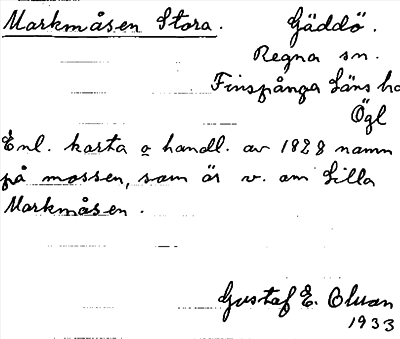 Markmåsen Stora. Gäddö.
Regna sn.
Finspånga Läns
Ögl
Enl. karta o handl. av 1828 namn
på mossen, som är v. om Lilla
Markmåsen.
Gustaf E. Olson
1933